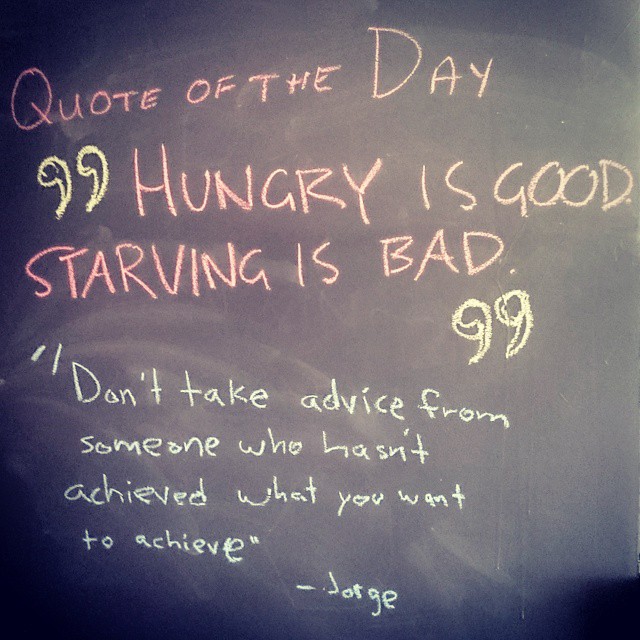 QUOTE OF THE DAY
"HUNGRY IS GOOD.
STARVING IS BAD.
"
"Don't take advice from
someone who hasn't
achieved what you want
to achieve"
- Jorge